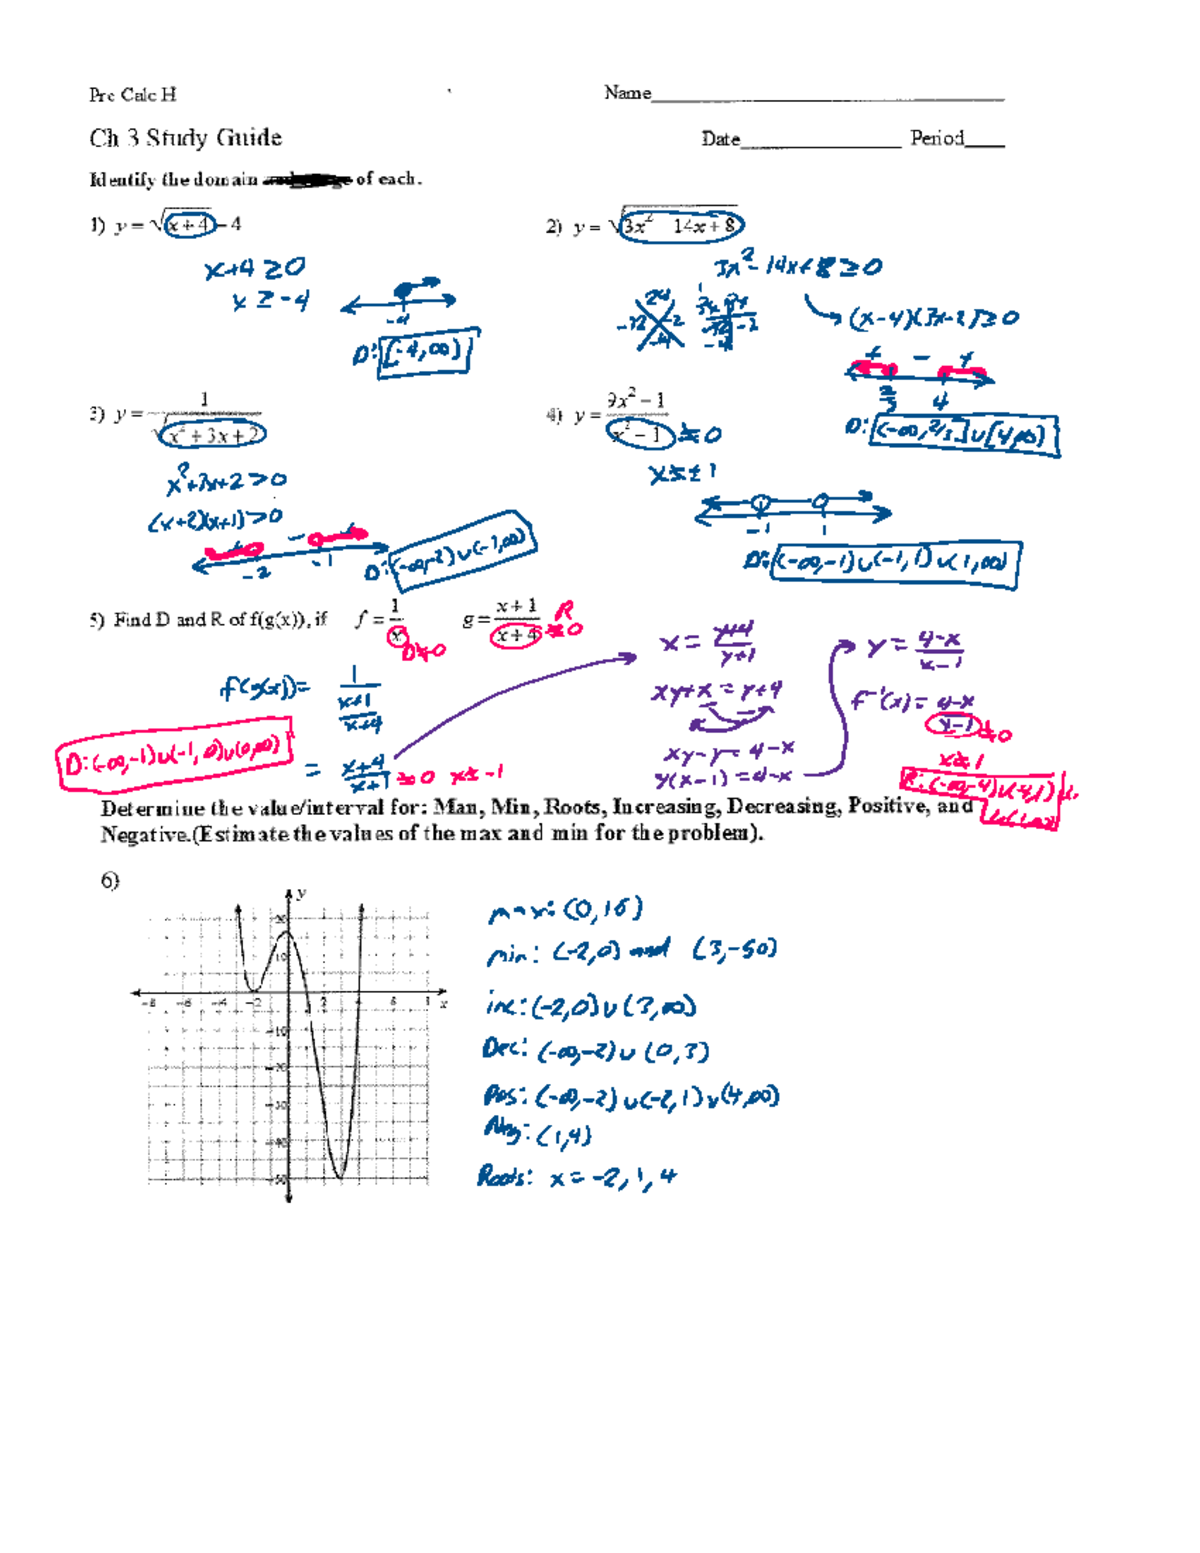 Pre Calc H Name
Ch 3 Study Guide Date Period
Identify the domain of each.
1) y = √(x + 4) – 4
x+4 ≥ 0
x ≥ -4
-4
D: [-4, ∞)
2) y = √(3x² 14x + 8)
3x² - 14x + 8 ≥ 0
24
-12 -2
(x-4)(3x-2) ≥ 0
+ - +
2/3 4
D: (-∞, 2/3] ∪ [4, ∞)
3) y = 1/√(x² + 3x + 2)
x²+3x+2 > 0
(x+2)(x+1) > 0
-2 -1
D: (-∞, -2) ∪ (-1, ∞)
4) y = (9x² – 1)/(x² – 1) ≠ 0
x ≠ ± 1
-1 1
D: (-∞, -1) ∪ (-1, 1) ∪ (1, ∞)
5) Find D and R of f(g(x)), if f = 1/x g = (x + 1)/(x + 4)
D ≠ 0
R ≠ 0
f(g(x)) = 1/((x+1)/(x+4))
= (x+4)/(x+1) ≠ 0 x ≠ -1
D: (-∞, -1) ∪ (-1, 0) ∪ (0, ∞)
x = (y+4)/(y+1)
xy+x = y+4
xy-y = 4-x
y(x-1) = 4-x
y = (4-x)/(x-1)
f⁻¹(x) = (4-x)/(x-1) ≠ 0
x ≠ 1
R: (-∞, -4) ∪ (-4, 1) ∪
Determine the value/interval for: Man, Min, Roots, Increasing, Decreasing, Positive, and
Negative.(Estimate the values of the max and min for the problem).
6)
y
20
10
-8 -6 -4 -2 2 4 6 8 x
-10
-20
-30
-40
-50
max: (0, 16)
min: (-2, 0) and (3, -50)
inc: (-2, 0) ∪ (3, ∞)
Dec: (-∞, -2) ∪ (0, 3)
Pos: (-∞, -2) ∪ (-2, 1) ∪ (4, ∞)
Neg: (1, 4)
Roots: x = -2, 1, 4